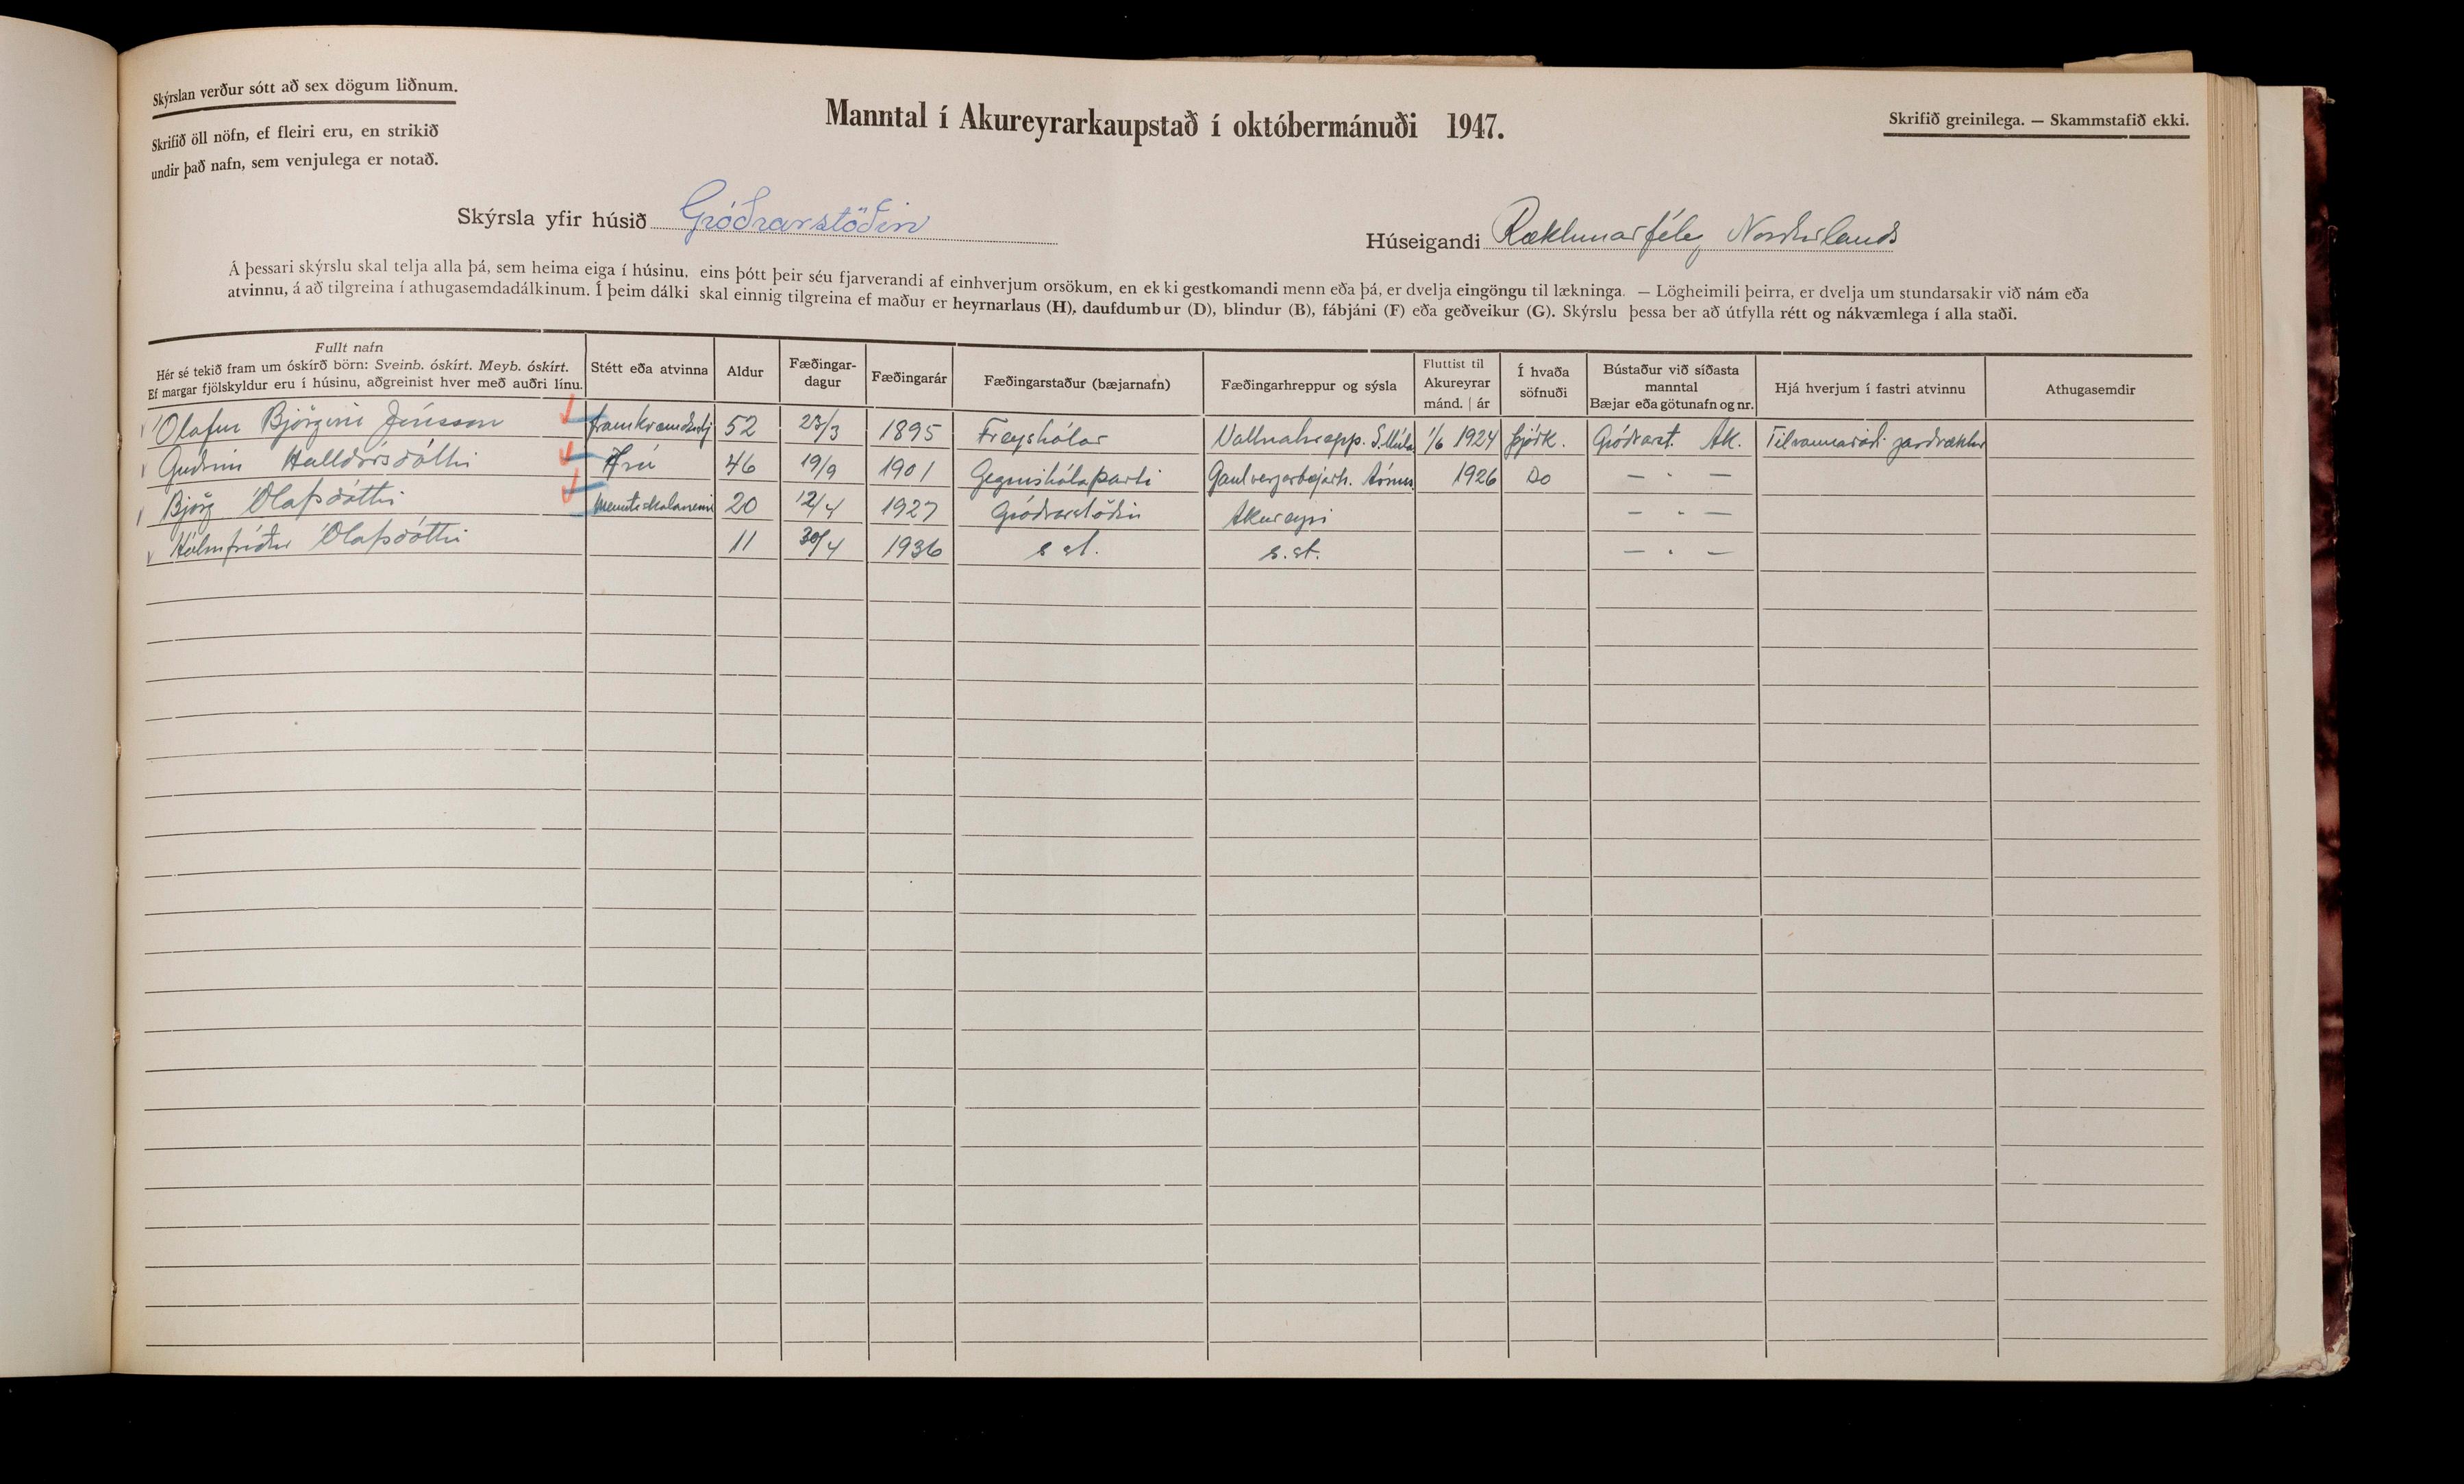 Skýrslan verður sótt að sex dögum liðnum.
Skrifið öll nöfn, ef fleiri eru, en strikið
undir það nafn, sem venjulega er notað.
Manntal í Akureyrarkaupstað í októbermánuði 1947.
Skrifið greinilega. — Skammstafið ekki.
Skýrsla yfir húsið Gróðrarstöðin
Húseigandi Ræktunarfélag Norðurlands
Á þessari skýrslu skal telja alla þá, sem heima eiga í húsinu, eins þótt þeir séu fjarverandi af einhverjum orsökum, en ekki gestkomandi menn eða þá, er dvelja eingöngu til lækninga. — Lögheimili þeirra, er dvelja um stundarsakir við nám eða
atvinnu, á að tilgreina í athugasemdadálkinum. Í þeim dálki skal einnig tilgreina ef maður er heyrnarlaus (H), daufdumbur (D), blindur (B), fábjáni (F) eða geðveikur (G). Skýrslu þessa ber að útfylla rétt og nákvæmlega í alla staði.
Fullt nafn
Hér sé tekið fram um óskírð börn: Sveinb. óskírt. Meyb. óskírt.
Ef margar fjölskyldur eru í húsinu, aðgreinist hver með auðri línu.
Stétt eða atvinna
Aldur
Fæðingar-
dagur
Fæðingarár
Fæðingarstaður (bæjarnafn)
Fæðingarhreppur og sýsla
Fluttist til
Akureyrar
mánd. | ár
Í hvaða
söfnuði
Bústaður við síðasta
manntal
Bæjar eða götunafn og nr.
Hjá hverjum í fastri atvinnu
Athugasemdir
Ólafur Björgvin Jónsson framkvæmdastj 52 23/3 1895 Freyshólar Vallnahrepp. S.Múla 1/6 1924 þjóðk. Gróðrarst. Ak.
Guðrún Halldórsdóttir Frú 46 19/9 1901 Gegnishólaparti Gaulverjarbæjarh. Árnes. 1926 Do — " —
Björg Ólafsdóttir Menntaskólanemi 20 12/4 1927 Gróðrarstöðin Akureyri — " —
Hólmfríður Ólafsdóttir 11 30/4 1936 s st. s. st. — " —